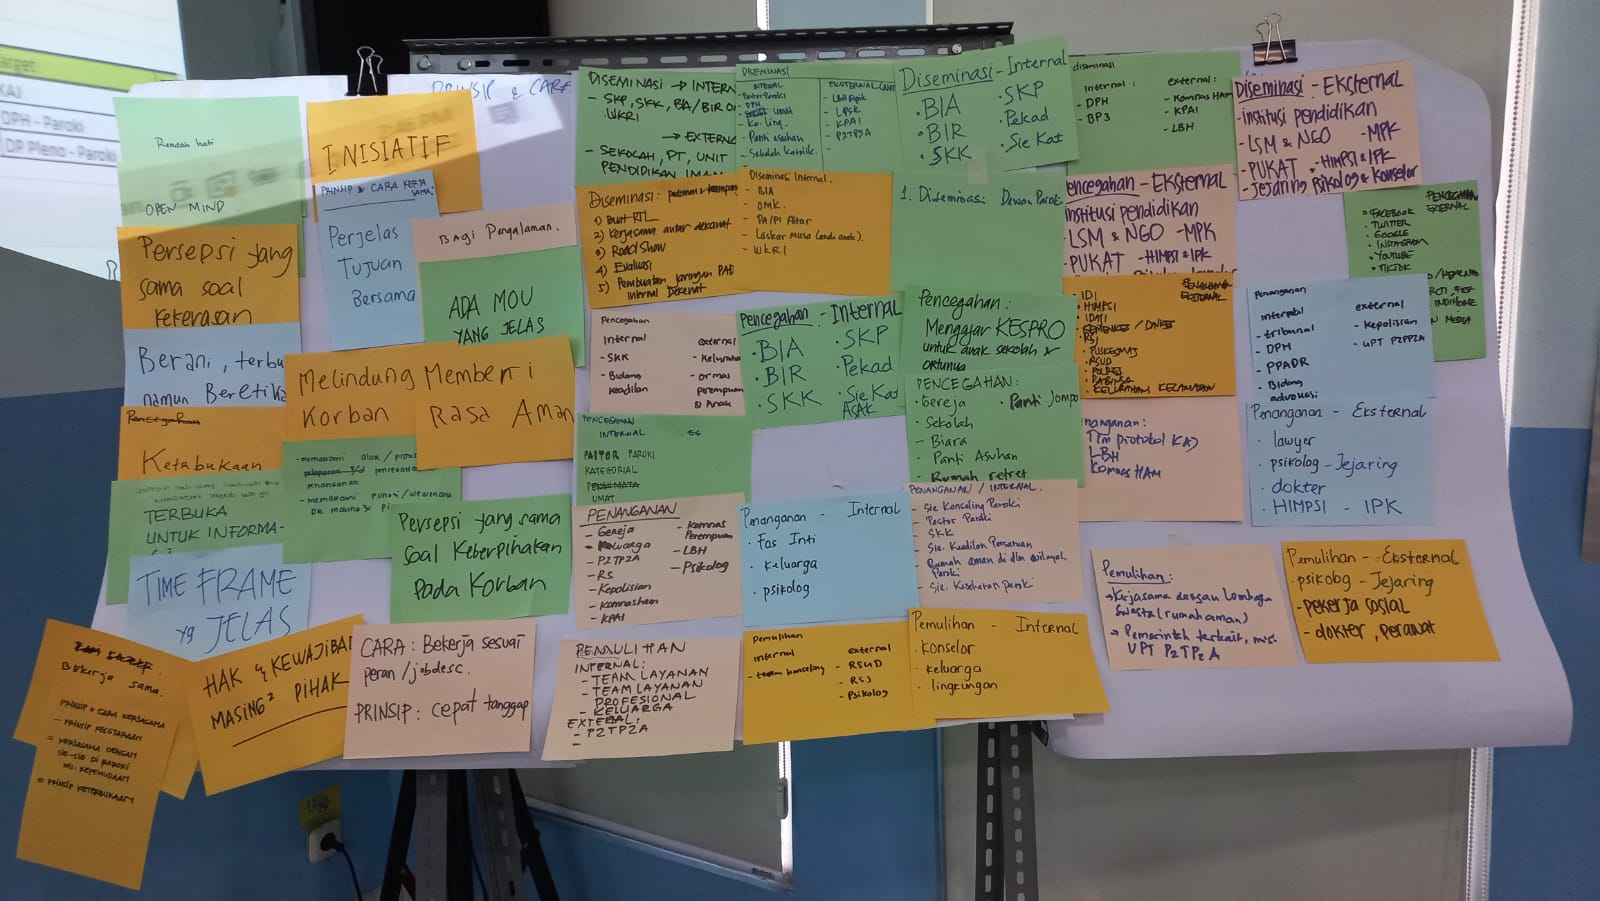 Target
KAJ
DPH - Paroki
DP Pleno - Paroki
PRINSIP & CARA
Rendah hati
OPEN MIND
INISIATIF
PRINSIP & CARA KERJA
SAMA.
Perjelas
Tujuan
Bersama
Bagi Pengalaman.
ADA MOU
YANG JELAS
Persepsi yang
sama soal
kekerasan
Berani, terbu
namun Beretika
Melindung
Korban
Memberi
Rasa Aman
Pencegahan
Ketabukaan
TERBUKA
UNTUK INFORMA-
- memahami alur / pros
Persepsi yang sama
soal Keberpihakan
pada Korban
TIME FRAME
yg JELAS
Bekerja sama.
PRINSIP & CARA KERJASAMA
- PRINSIP KESETARAAN
= KERJASAMA DENGAN
SIE-SIE DI PAROKI
MIS: KEPEMUDAAN
= PRINSIP KETERBUKAAN
HAK & KEWAJIBA
MASING² PIHAK
CARA : Bekerja sesuai
peran / jobdesc.
PRINSIP : cepat tanggap
DISEMINASI → INTERN
- SKP, SKK, BA/BIR OM
WKRI
→ EXTERN
- SEKOLAH, PT, UNIT
PENDIDIKAN IMAN
DISEMINASI
INTERNAL
- Pastor Paroki
- DPH
- Ka. Ling.
- Panti asuhan
- Sekolah Katolik.
EKSTERNAL
- LBH Apik
- LPSK
- KPAI
- P2TP2A
Diseminasi - Internal
· BIA
· BIR
· SKK
· SKP
· Pekad
· Sie Kat
diseminasi
internal :
- DPH
- BP3
external :
- Komnas HAM
- KPAI
- LBH
Diseminasi - Eksternal
- institusi pendidikan
- LSM & NGO - MPK
- PUKAT - HIMPSI & IPK
- Jejaring Psikolog & Konselor
Diseminasi :
1) Buat RTL
2) Kerjasama antar dekenat
3) Road Show
4) Evaluasi
5) Pembuatan jaringan PAD
internal Dekenat
Diseminasi Internal.
- BIA
- OMK.
- PA/PI Altar
- Laskar Musa
- WKRI
1. Diseminasi Dewan Paroki
encegahan - Eksternal
institusi pendidikan
LSM & NGO - MPK
PUKAT - HIMPSI & IPK
PENCEGAHAN
EXTERNAL
· FACEBOOK
· TWITTER
· GOOGLE
· INSTAGRAM
· YOUTUBE
· TIKTOK
Pencegahan
Internal
- SKK
- Bidang
keadilan
external
- Kelurahan
- ormas
perempuan
& Anak
Pencegahan - Internal
· BIA
· BIR
· SKK
· SKP
· Pekad
· Sie Kat
ASAK
Pencegahan :
Mengajar KESPRO
untuk anak sekolah &
ortunya
PENCEGAHAN
EKSTERNAL
· IDI
· HIMPSI
· IDAI
· RSJ
· PUSKESMAS
· RSUD
· POLRES
· BABINSA
· KELURAHAN KECAMATAN
Penanganan
internal
- tribunal
- DPH
- PPADR
- Bidang
advokasi
external
- Kepolisian
- UPT P2TP2A
PENCEGAHAN
INTERNAL
PASTOR PAROKI
KATEGORIAL
UMAT
PENCEGAHAN :
- Gereja
· Sekolah
- Biara
- Panti Asuhan
- Rumah retret
· Panti Jompo
nanganan :
Tim protokol KAJ
LBH
Komnas HAM
Penanganan - Eksternal
· lawyer
· psikolog - Jejaring
· dokter
· HIMPSI - IPK
PENANGANAN
- Gereja
- Keluarga
- P2TP2A
- RS
- Kepolisian
- Komnasham
- KPAI
- Komnas
Perempuan
- LBH
- Psikolog
Penanganan - Internal
· Fas Inti
· Keluarga
· psikolog
PENANGANAN / INTERNAL.
- Sie Konseling Paroki
- Pastor Paroki
- SKK
- Sie. Keadilan Persatuan
- Rumah aman di dlm wilayah
Paroki
- Sie. Kesehatan paroki
Pemulihan :
→ Kerjasama dengan Lembaga
Swasta (rumah aman)
→ Pemerintah terkait, mis:
UPT P2TP2A
Pemulihan - Eksternal
- psikolog - Jejaring
- pekerja sosial
- dokter, perawat
PEMULIHAN
INTERNAL :
- TEAM LAYANAN
- TEAM LAYANAN
PROFESIONAL
- KELUARGA
EXTERNAL :
- P2TP2A
-
Pemulihan
internal
- team konseling
external
- RSUD
- RSJ
- Psikolog
Pemulihan - Internal
· konselor
· keluarga
· lingkungan